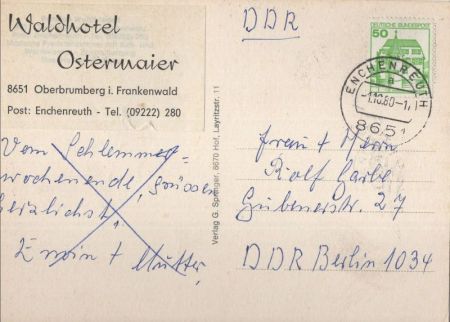 Waldhotel
Ostermaier
8651 Oberbrumberg i. Frankenwald
Post: Enchenreuth - Tel. (09222) 280
Vom Schlemmer=
wochenende, grüssen
herzlichst
Erwin + Mutter
Verlag G. Springer, 8670 Hof, Layritzstr. 11
DDR
50
DEUTSCHE BUNDESPOST
ENCHENREUTH
a
8651
Frau + Herrn
Rolf
Gubenerstr. 27
DDR Berlin 1034